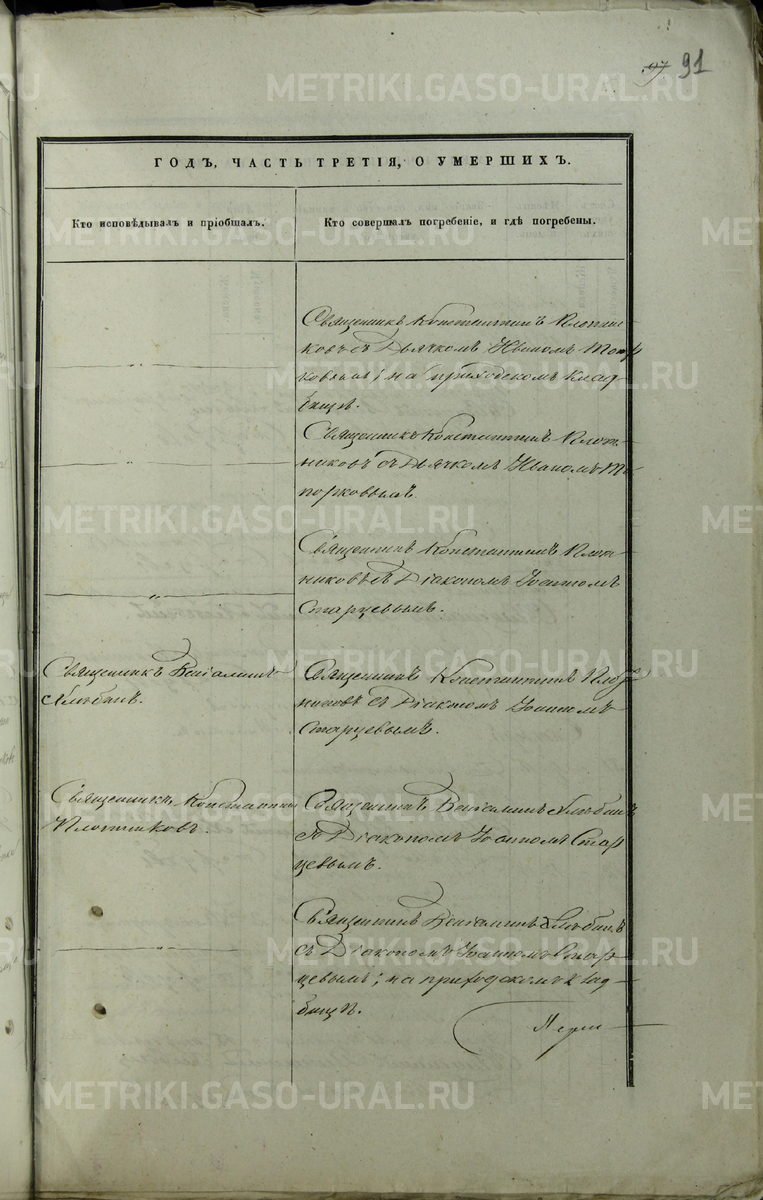 97 91
ГОДЪ, ЧАСТЬ ТРЕТІЯ, О УМЕРШИХЪ.
Кто исповѣдывалъ и пріобщалъ.
Кто совершалъ погребеніе, и гдѣ погребены.
Священникъ Константинъ Плотни-
ковъ съ Дьячкомъ Иваномъ Топор
ковымъ; на приходскомъ клад-
бищѣ.
Священникъ Константинъ Плот-
никовъ съ Дьячкомъ Иваномъ То-
порковымъ.
Священникъ Константинъ Плот-
никовъ съ Діакономъ Іоанномъ
Старцевымъ.
Священникъ Веніаминъ
Хлѣбинъ.
Священникъ Константинъ Плот
никовъ съ Діакономъ Іоанномъ
Старцевымъ.
Священникъ Константинъ
Плотниковъ.
Священникъ Веніаминъ Хлѣбинъ
съ Діакономъ Іоанномъ Стар
цевымъ.
Священникъ Веніаминъ Хлѣбинъ
съ Діакономъ Іоанномъ Стар
цевымъ; на приходскомъ клад-
бищѣ.
METRIKI.GASO-URAL.RU